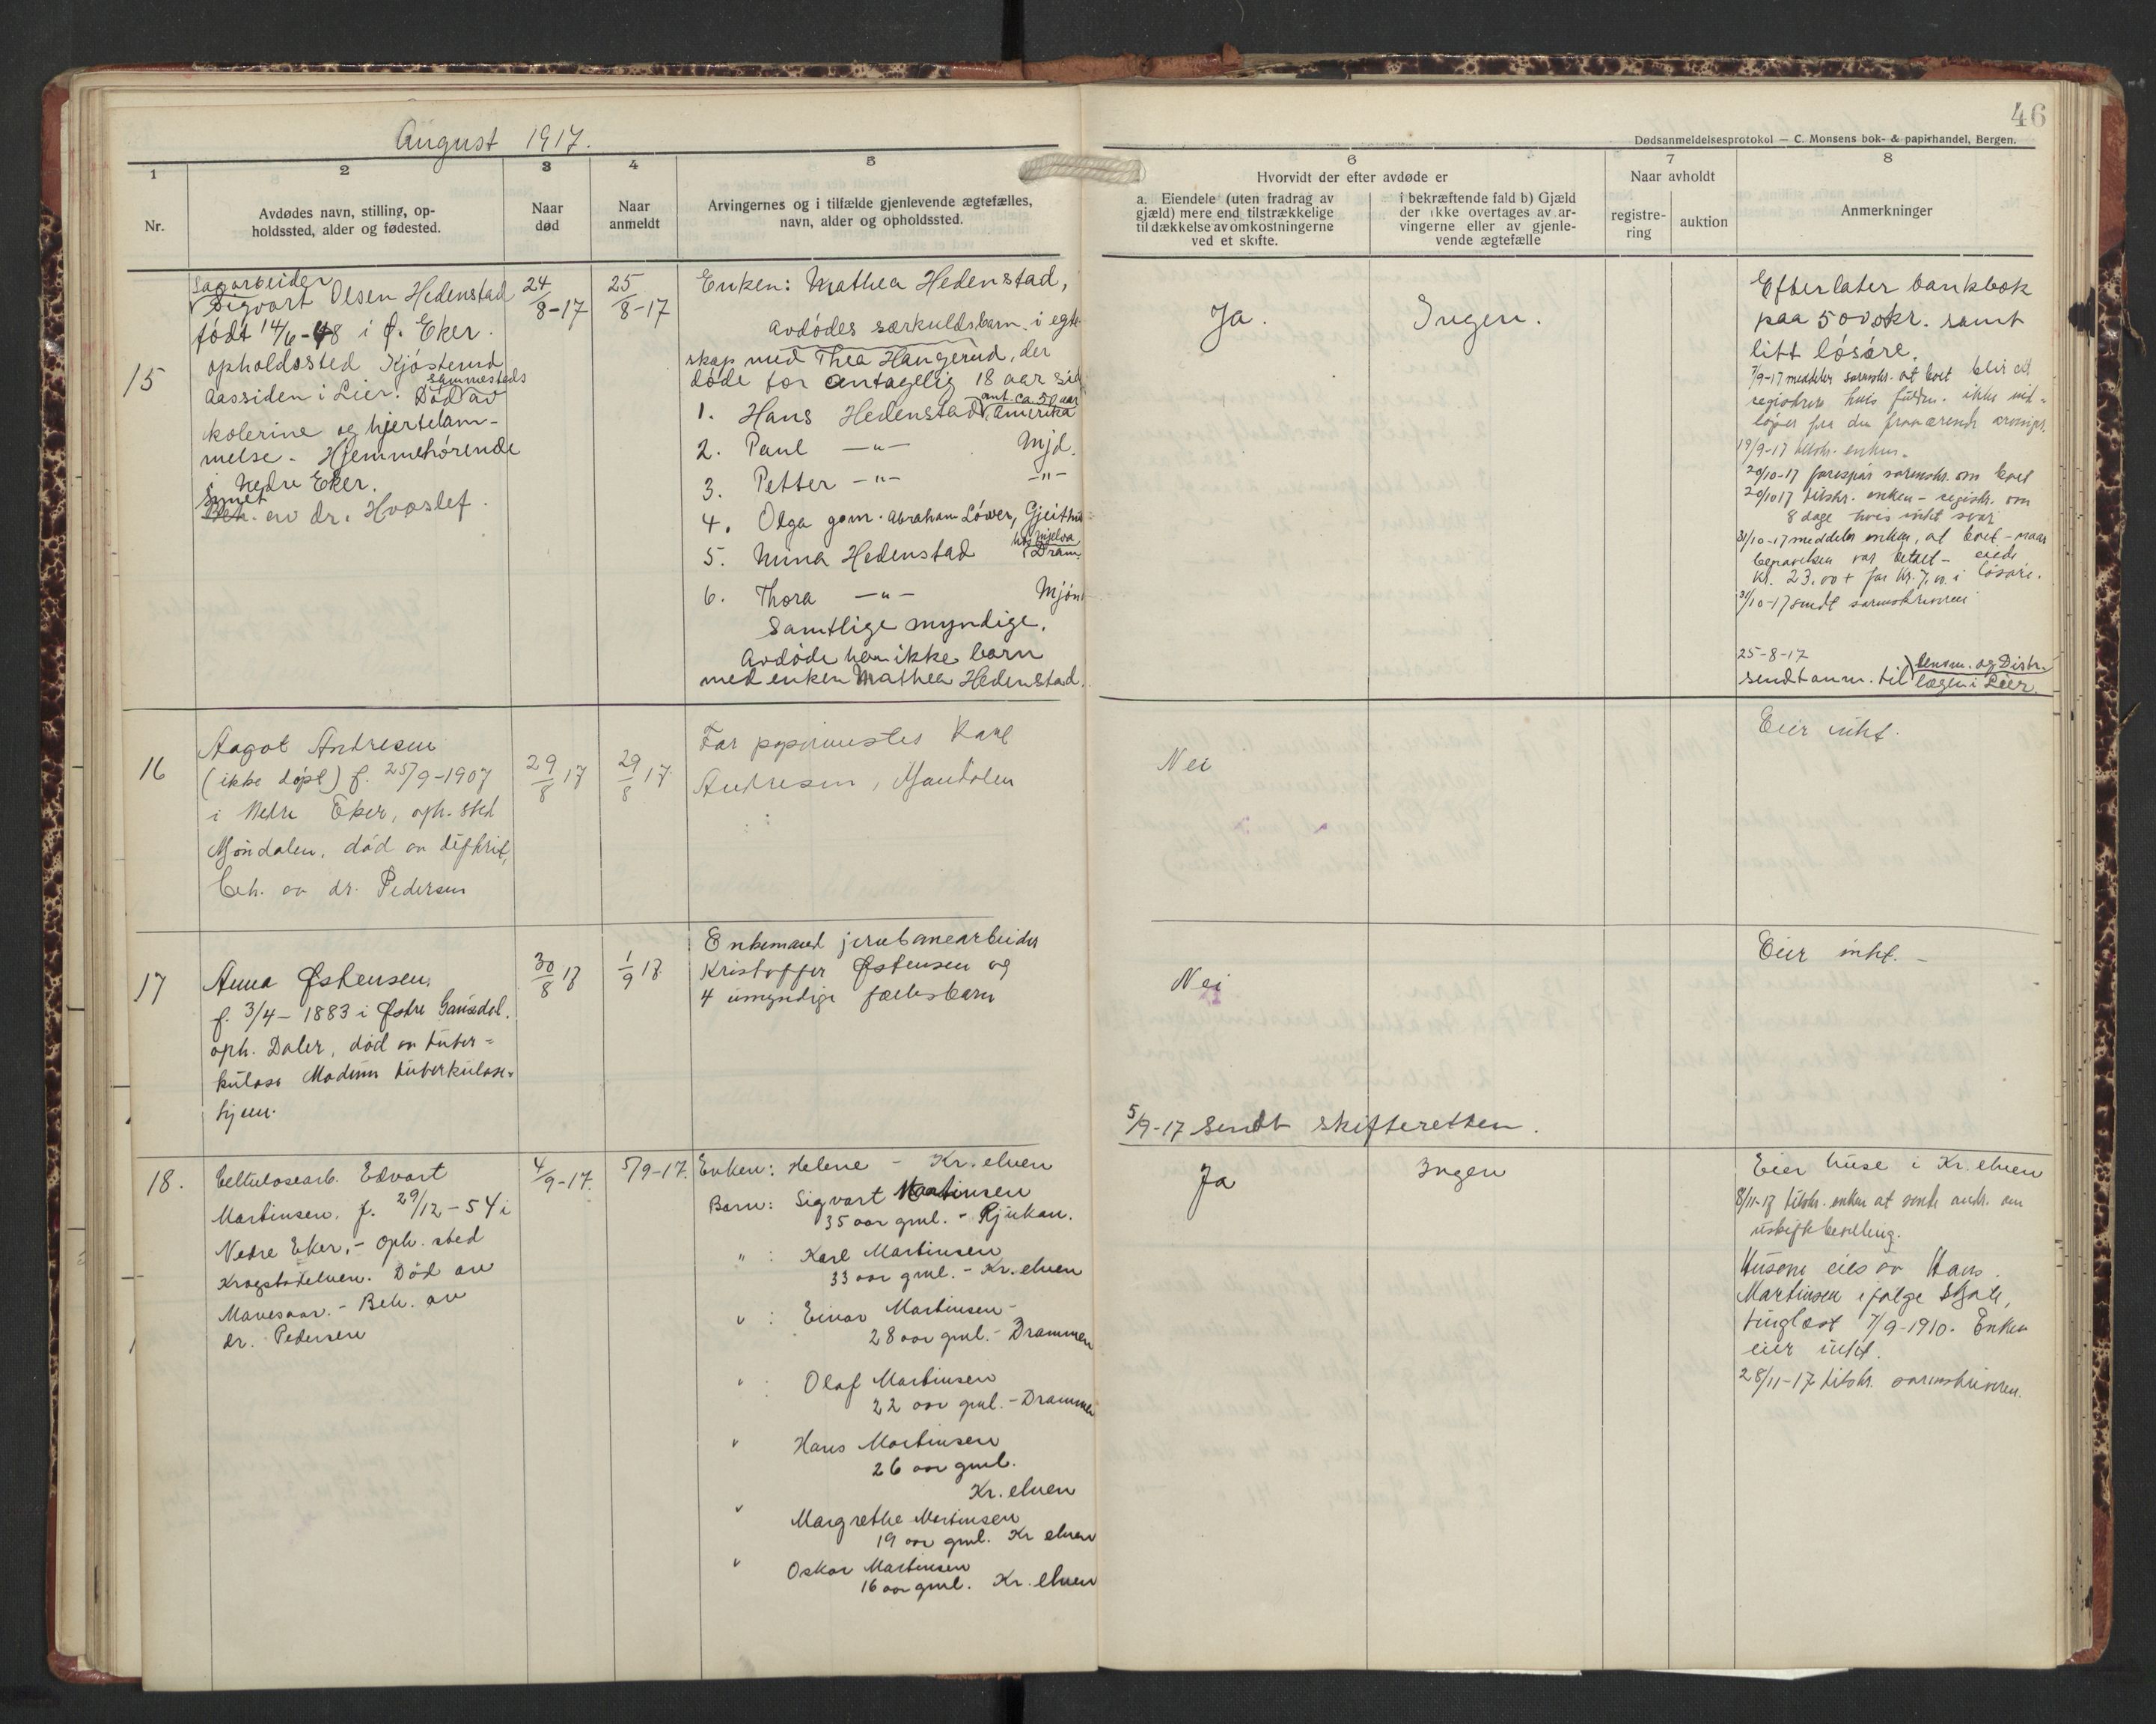 46
August 1917.
Dødsanmeldelsesprotokol — C. Monsens bok- & papirhandel, Bergen.
1
Nr.
2
Avdødes navn, stilling, op-
holdssted, alder og fødested.
3
Naar
død
4
Naar
anmeldt
5
Arvingernes og i tilfælde gjenlevende ægtefælles,
navn, alder og opholdssted.
6
Hvorvidt der efter avdøde er
a. Eiendele (uten fradrag av
gjæld) mere end tilstrækkelige
til dækkelse av omkostningerne
ved et skifte.
i bekræftende fald b) Gjæld
der ikke overtages av ar-
vingerne eller av gjenle-
vende ægtefælle
7
Naar avholdt
registre-
ring
auktion
8
Anmerkninger
15
Sagarbeider
Sigvart Olsen Hedenstad
født 14/6-48 i Ø. Eker.
opholdssted Kjøsterud
sammesteds
Aassiden i Lier. Død av
kolerine og hjertelam-
melse. Hjemmehørende
i Nedre Eker.
Synet
Beh. av dr. Hvoslef.
24/8-17
25/8-17
Enken: Mathea Hedenstad,
Avdødes særkuldsbarn i egte-
skap med Thea Haugerud, der
døde for antagelig 18 aar
ant. ca. 50 aar
1. Hans Hedenstad, Amerika
2. Paul —"— Mjd.
3. Petter —"— —"—
4. Olga gem. Abraham Løver, Gjeithus
hos Mjelva
5. Mina Hedenstad Dram
6. Thora —"— Mjøn
Samtlige myndige.
Avdøde har ikke barn
med enken Mathea Hedenstad.
Ja.
Ingen.
Efterlater bankbok
paa 500 kr. samt
litt løsøre.
7/9-17 meddeler sorenskr. at boet blir at
registrere hvis
19/9-17 tilskr. enken.
20/10-17 forespør sorenskr. om boet
20/10 17 tilskr. enken - registr. om
8 dage hvis intet svar
31/10-17 meddeler enken, at boet - naar
begravelsen var betalt - eiede
Kr. 23.00 + for Kr. 7.00 i løsøre.
31/10-17 sendt sorenskriveren
25-8-17
sendt anm. til lensm. og Distr.
lægen i Lier.
16
Aagot Andresen
(ikke døpt) f. 25/9-1907
i Nedre Eker, oph. sted
Mjøndalen, død av difterit,
beh. av dr. Pedersen
29/8 17
29/8 17
Far papirmester Karl
Andresen, Mjøndalen
Nei
Eier intet.
17
Anna Østensen,
f. 3/4-1883 i Østre Gausdal.
oph. Daler, død av tuber-
kulose Modum tuberkulose-
hjem.
30/8 17
1/9 17
Enkemand jernbanearbeider
Kristoffer Østensen og
4 umyndige fællesbarn
Nei
Eier intet. -
5/9-17 Sendt skifteretten.
18.
Cellulosearb. Edvart
Martinsen. f. 29/12-54 i
Nedre Eker, - Oph. sted
Krogstadelven. Død av
Mavesaar. - Beh. av
dr. Pedersen
4/9-17.
5/9-17.
Enken: Helene - Kr. elven
Barn: Sigvart Martinsen
35 aar gml. - Rjukan.
" : Karl Martinsen
33 aar gml. - Kr. elven
" : Einar Martinsen -
28 aar gml. - Drammen
" : Olaf Martinsen
22 aar gml. - Drammen
" Hans Martinsen
26 aar gml.
Kr. elven
" Margrethe Martinsen
19 aar gml. Kr elven
" Oskar Martinsen
16 aar gml. Kr. elven
Ja
Ingen
Eier huse i Kr. elven
8/11-17 tilskr. enken at sende andr. om
uskiftbevilling.
Husene eies av Hans
Martinsen ifølge skjøte,
tinglæst 7/9-1910. Enken
eier intet.
28/11-17 tilskr. sorenskriveren.